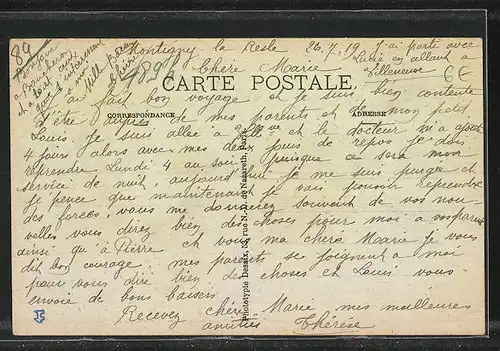 89
Montigny la Resle 26.7.19 J'ai parté avec
Lucie en allant à
Villeneuve
6€
Chère Marie
Mille baisers
CARTE POSTALE
CORRESPONDANCE
ADRESSE
J'ai fait bon voyage et je suis bien contente
d'être auprès de mes parents et de mon petit
Louis. Je suis allée à et le docteur m'a ajouté
4 jours alors avec mes deux jours de repos je dois
reprendre Lundi 4 au soir puisque ce sera mon
service de nuit, aujourd'hui je me suis purgée et
je pense que maintenant je vais pouvoir reprendre
des forces, vous me donnerez souvent de vos nou-
velles vous direz bien des choses pour moi à vos parents
ainsi qu'à Pierre et vous ma chère Marie je vous
dit bon courage mes parents se joignent a moi
pour vous dire bien des choses et Louis vous
envoie de bons baisers
Recevez chère Marie mes meilleures
amitiés Thérèse
Phototypie Desaix, 33, rue N.-D. de Nazareth, Paris